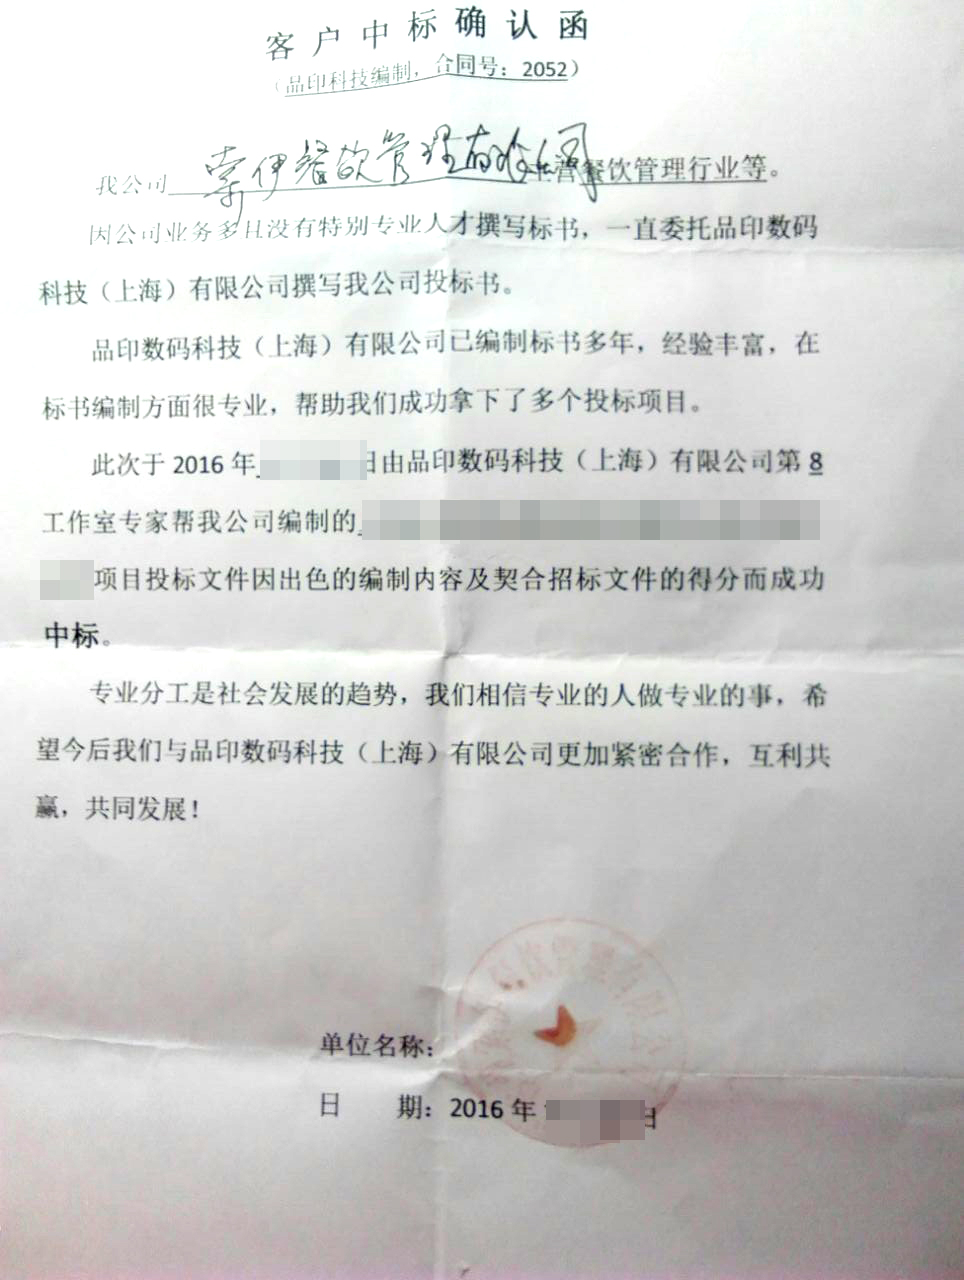 客户中标确认函
（品印科技编制，合同号：2052）
我公司 索伊餐饮管理有限公司 主营餐饮管理行业等。
因公司业务多且没有特别专业人才撰写标书，一直委托品印数码
科技（上海）有限公司撰写我公司投标书。
品印数码科技（上海）有限公司已编制标书多年，经验丰富，在
标书编制方面很专业，帮助我们成功拿下了多个投标项目。
此次于 2016 年 日由品印数码科技（上海）有限公司第 8
工作室专家帮我公司编制的
项目投标文件因出色的编制内容及契合招标文件的得分而成功
中标。
专业分工是社会发展的趋势，我们相信专业的人做专业的事，希
望今后我们与品印数码科技（上海）有限公司更加紧密合作，互利共
赢，共同发展！
单位名称：
日 期：2016 年 日